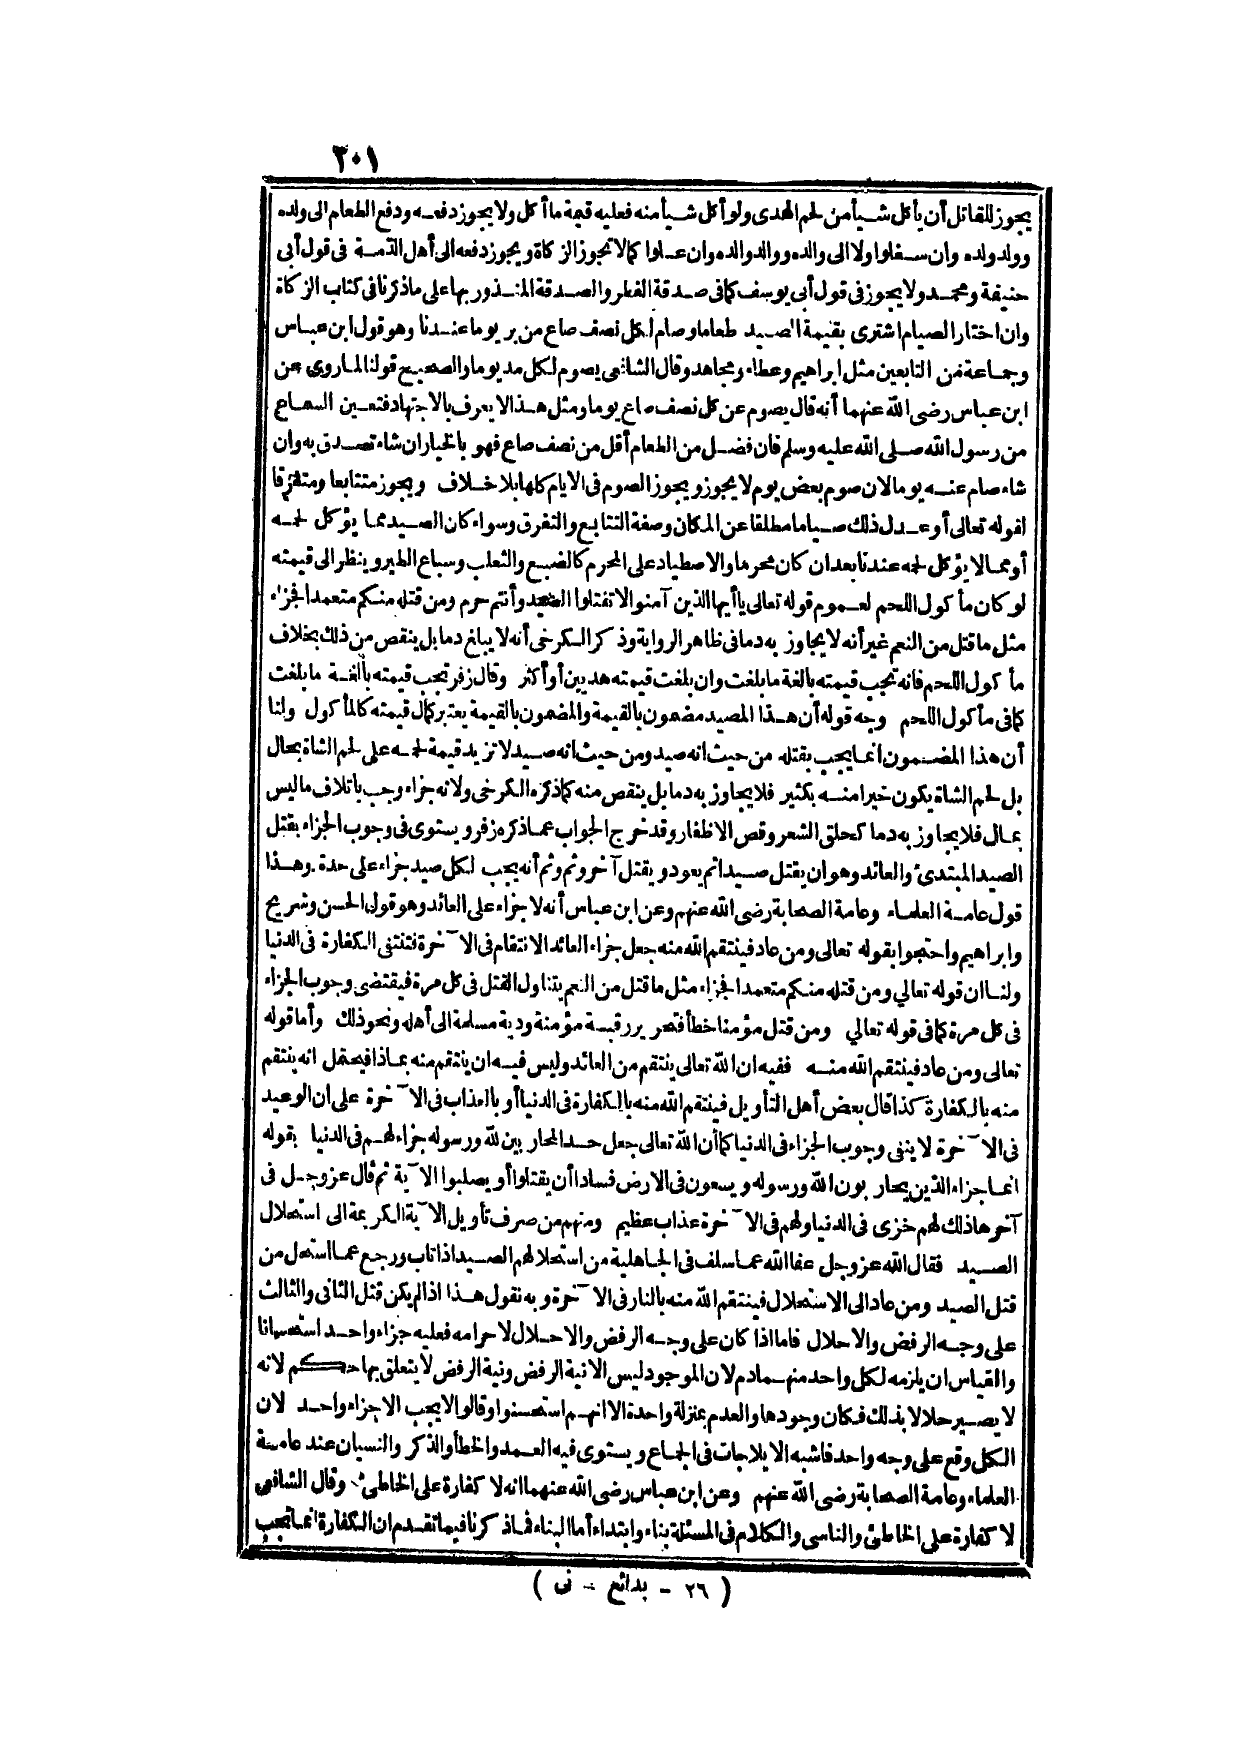 ٢٠١
يجوز للقاتل أن يأكل شيأ من لحم الهدى ولو أكل شيأ منه فعليه قيمة ما أكل ولا يجوز دفعه ودفع الطعام الى ولده
وولد ولده وان سفلوا ولا الى والده ووالد والده وان علوا كما لا تجوز الزكاة ويجوز دفعه الى أهل الذمة فى قول أبى
حنيفة ومحمد ولا يجوز فى قول أبى يوسف كما فى صدقة الفطر والصدقة المنذور بها على ما ذكرنا فى كتاب الزكاة
وان اختار الصيام اشترى بقيمة الصيد طعاما وصام لكل نصف صاع من بر يوما عندنا وهو قول ابن عباس
وجماعة من التابعين مثل ابراهيم وعطاء ومجاهد وقال الشافعى يصوم لكل مد يوما والصحيح قولنا لما روى عن
ابن عباس رضى الله عنهما أنه قال يصوم عن كل نصف صاع يوما ومثل هذا لا يعرف بالاجتهاد فتعين السماع
من رسول الله صلى الله عليه وسلم فان فضل من الطعام أقل من نصف صاع فهو بالخيار ان شاء تصدق به وان
شاء صام عنه يوما لان صوم بعض يوم لا يجوز ويجوز الصوم فى الايام كلها بلا خلاف ويجوز متتابعا ومتفرقا
لقوله تعالى أو عدل ذلك صياما مطلقا عن المكان وصفة التتابع والتفرق وسواء كان الصيد مما يؤكل لحمه
أو مما لا يؤكل لحمه عندنا بعد ان كان محرما والاصطياد على المحرم كالضبع والثعلب وسباع الطير وينظر الى قيمته
لو كان مأكول اللحم لعموم قوله تعالى يا أيها الذين آمنوا لا تقتلوا الصيد وأنتم حرم ومن قتله منكم متعمدا فجزاء
مثل ما قتل من النعم غير أنه لا يجاوز به دما فى ظاهر الرواية وذكر الكرخى أنه لا يبلغ دما بل ينقص من ذلك بخلاف
مأكول اللحم فانه تجب قيمته بالغة ما بلغت وان بلغت قيمته هديين أو أكثر وقال زفر تجب قيمته بالغة ما بلغت
كما فى مأكول اللحم وجه قوله أن هذا المصيد مضمون بالقيمة والمضمون بالقيمة يعتبر كمال قيمته كالمأكول ولنا
أن هذا المضمون انما يجب بقتله من حيث انه صيد ومن حيث انه صيد لا تزيد قيمة لحمه على لحم الشاة بحال
بل لحم الشاة يكون خيرا منه بكثير فلا يجاوز به دما بل ينقص منه كما ذكره الكرخى ولانه جزاء وجب باتلاف ما ليس
بمال فلا يجاوز به دما كحلق الشعر وقص الاظفار وقد خرج الجواب عما ذكره زفر ويستوى فى وجوب الجزاء بقتل
الصيد المبتدئ والعائد وهو ان يقتل صيدا ثم يعود ويقتل آخر وثم وثم أنه يجب لكل صيد جزاء على حدة وهذا
قول عامة العلماء وعامة الصحابة رضى الله عنهم وعن ابن عباس أنه لا جزاء على العائد وهو قول الحسن وشريح
وابراهيم واحتجوا بقوله تعالى ومن عاد فينتقم الله منه جعل جزاء العائد الانتقام فى الآخرة فتنتفى الكفارة فى الدنيا
ولنا ان قوله تعالى ومن قتله منكم متعمدا فجزاء مثل ما قتل من النعم يتناول القتل فى كل مرة فيقتضى وجوب الجزاء
فى كل مرة كما فى قوله تعالي ومن قتل مؤمنا خطأ فتحرير رقبة مؤمنة ودية مسلمة الى أهله ونحو ذلك وأما قوله
تعالى ومن عاد فينتقم الله منه ففيه ان الله تعالى ينتقم من العائد وليس فيه ان ينتقم منه بماذا فيحتمل انه ينتقم
منه بالكفارة كذا قال بعض أهل التأويل فينتقم الله منه بالكفارة فى الدنيا أو بالعذاب فى الآخرة على ان الوعيد
فى الآخرة لا ينفى وجوب الجزاء فى الدنيا كما أن الله تعالى جعل حد المحاربين لله ورسوله جزاء لهم فى الدنيا بقوله
انما جزاء الذين يحاربون الله ورسوله ويسعون فى الارض فسادا أن يقتلوا أو يصلبوا الآية ثم قال عز وجل فى
آخرها ذلك لهم خزى فى الدنيا ولهم فى الآخرة عذاب عظيم ومنهم من صرف تأويل الآية الكريمة الى استحلال
الصيد فقال الله عز وجل عفا الله عما سلف فى الجاهلية من استحلالهم الصيد اذا تاب ورجع عما استحل من
قتل الصيد ومن عاد الى الاستحلال فينتقم الله منه بالنار فى الآخرة وبه نقول هذا اذا لم يكن قتل الثانى والثالث
على وجه الرفض والاحلال فاما اذا كان على وجه الرفض والاحلال لاحرامه فعليه جزاء واحد استحسانا
والقياس ان يلزمه لكل واحد منهما دم لان الموجود ليس الا نية الرفض ونية الرفض لا يتعلق بها حكم لانه
لا يصير حلالا بذلك فكان وجودها والعدم بمنزلة واحدة الا انهم استحسنوا وقالوا لا يجب الا جزاء واحد لان
الكل وقع على وجه واحد فاشبه الايلاجات فى الجماع ويستوى فيه العمد والخطأ والذكر والنسيان عند عامة
العلماء وعامة الصحابة رضى الله عنهم وعن ابن عباس رضى الله عنهما انه لا كفارة على الخاطئ وقال الشافعى
لا كفارة على الخاطئ والناسى والكلام فى المسئلة بناء وابتداء أما البناء فما ذكرنا فيما تقدم ان الكفارة انما تجب
( ٢٦ - بدائع - نى )